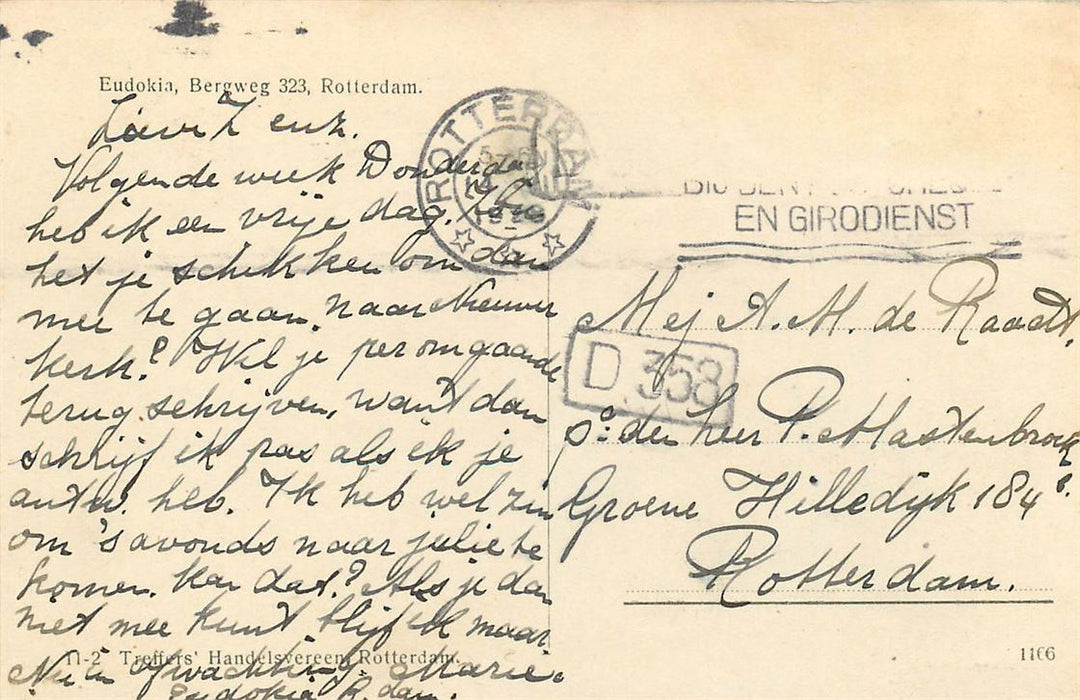 Eudokia, Bergweg 323, Rotterdam.
Lieve Z enz.
Volgende week Donderdag
heb ik een vrije dag.
het je schikken om dan
mee te gaan naar Nieuwer
kerk? Wil je per omgaande
terug schrijven, want dan
schrijf ik pas als ik je
antw. heb. Ik heb wel zin
om 's avonds naar jelie te
komen. Kan dat? Als je dan
niet mee kunt blijf ik maar
Nu in afwachting Marie.
Eudokia R.dam.
ROTTERDAM
EN GIRODIENST
D 358
Mej A. M. de Raadt.
p: den heer P. Mastenbroek
Groene Hilledijk 184
Rotterdam.
11-2 Treffers' Handelsvereen. Rotterdam.
1166